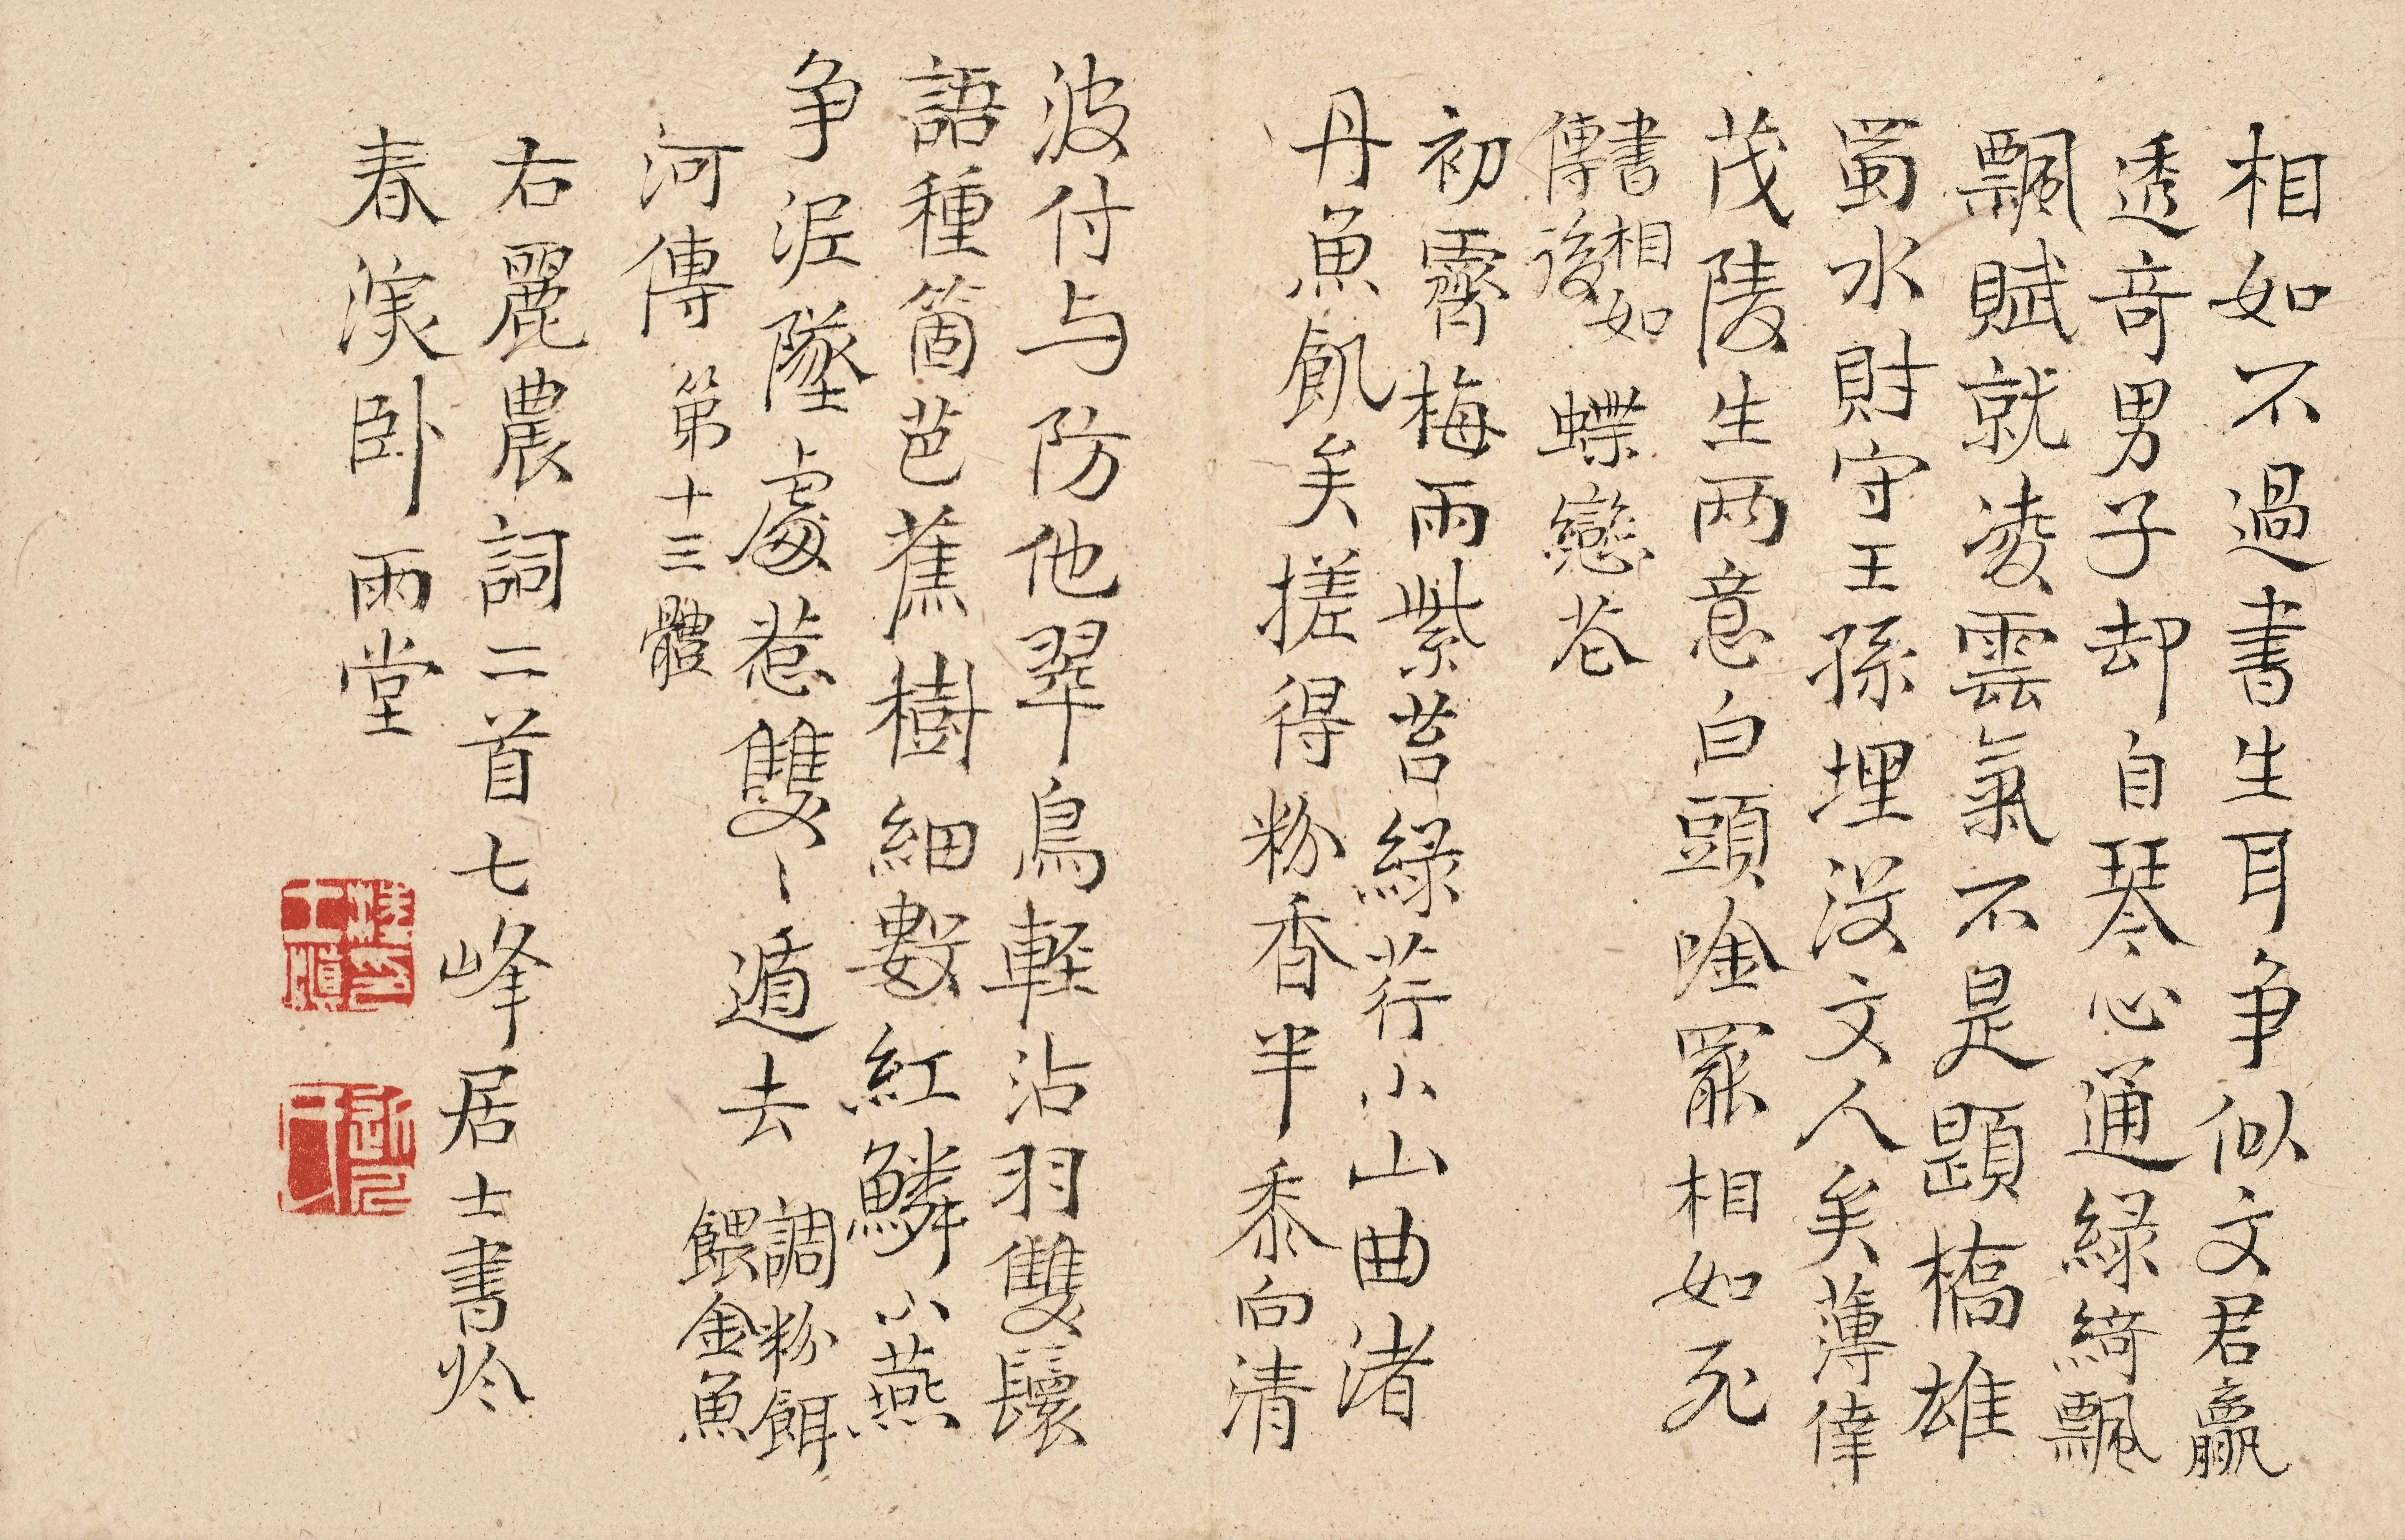 相如不過書生耳爭似文君贏
透奇男子却自琴心通綠綺飄
飄賦就凌雲氣不是題橋雄
蜀水財守王孫埋没文人矣薄倖
茂陵生兩意白頭唫罷相如死
書相如
傳後
蝶戀花
初霽梅雨紫苔綠荇小山曲渚
丹魚飢矣搓得粉香半黍向清
波付与防他翠鳥輕沾羽雙鬟
語種箇芭蕉樹細數紅鱗小燕
爭泥墜處惹雙〻遁去
調粉餌
餵金魚
河傳 第十三體
右麗農詞二首七峰居士書於
春溪卧雨堂